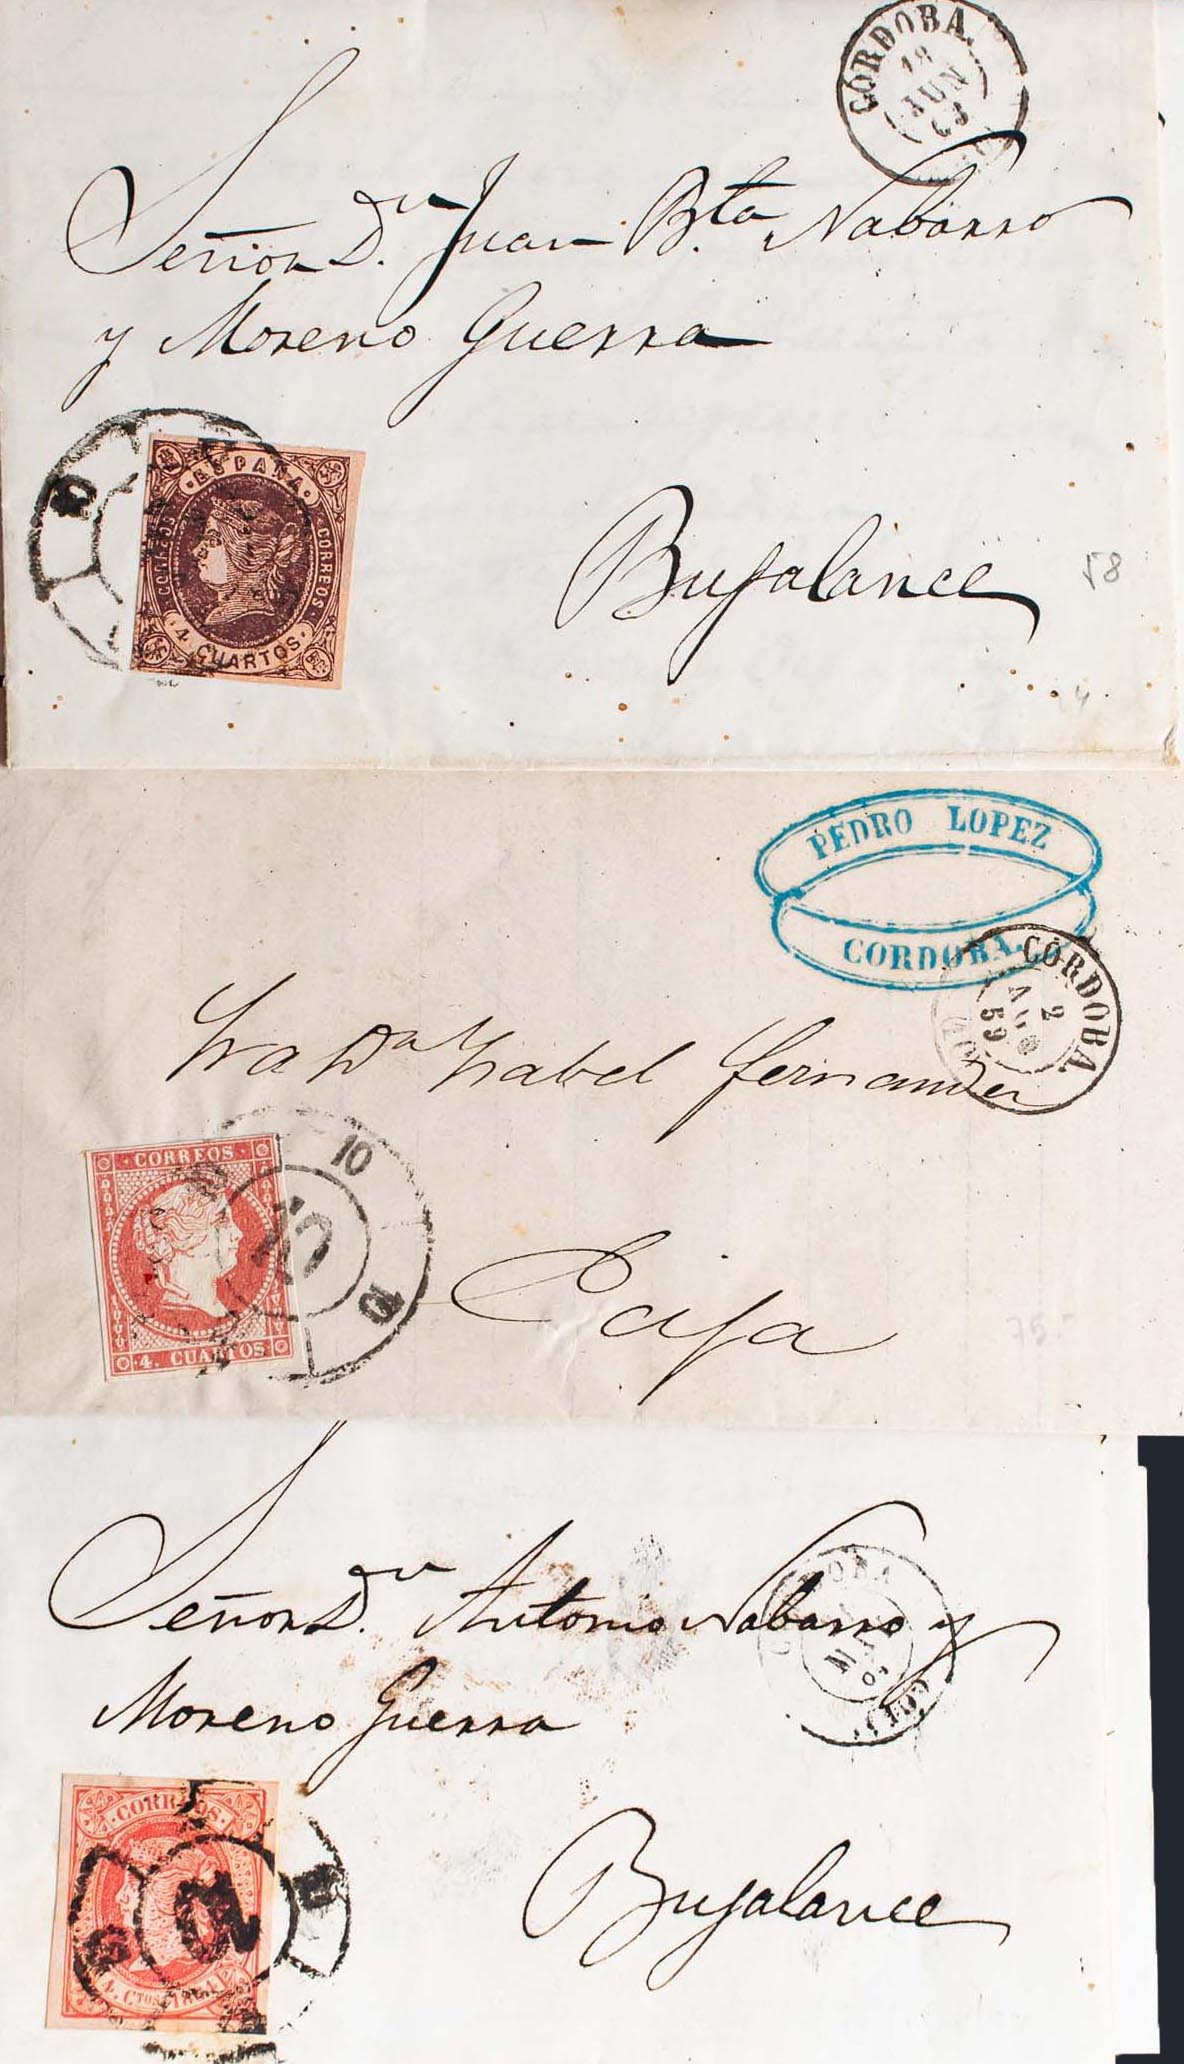 CORDOBA.
18
JUN
63
Señor D.ⁿ Juan B.ta Nabarro
y Moreno Guerra
ESPAÑA
CORREOS
CORREOS
4 CUARTOS
Bujalance
58
4
PEDRO LOPEZ
CORDOBA.
CORDOBA
2
AGO
59
Sra Dª Ysabel Fernandez
CORREOS
4 CUARTOS
10
10
Ecija
75.-
Señor D.ⁿ Antonio Nabarro y
Moreno Guerra
CORREOS
4 CTOS 1864
Bujalance